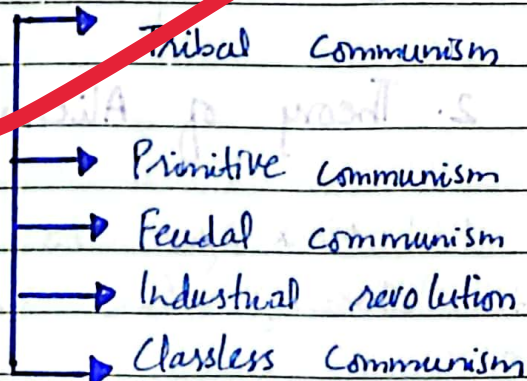 Tribal Communism
2. Theory of Alien
Primitive Communism
Feudal Communism
Industrial revolution
Classless Communism